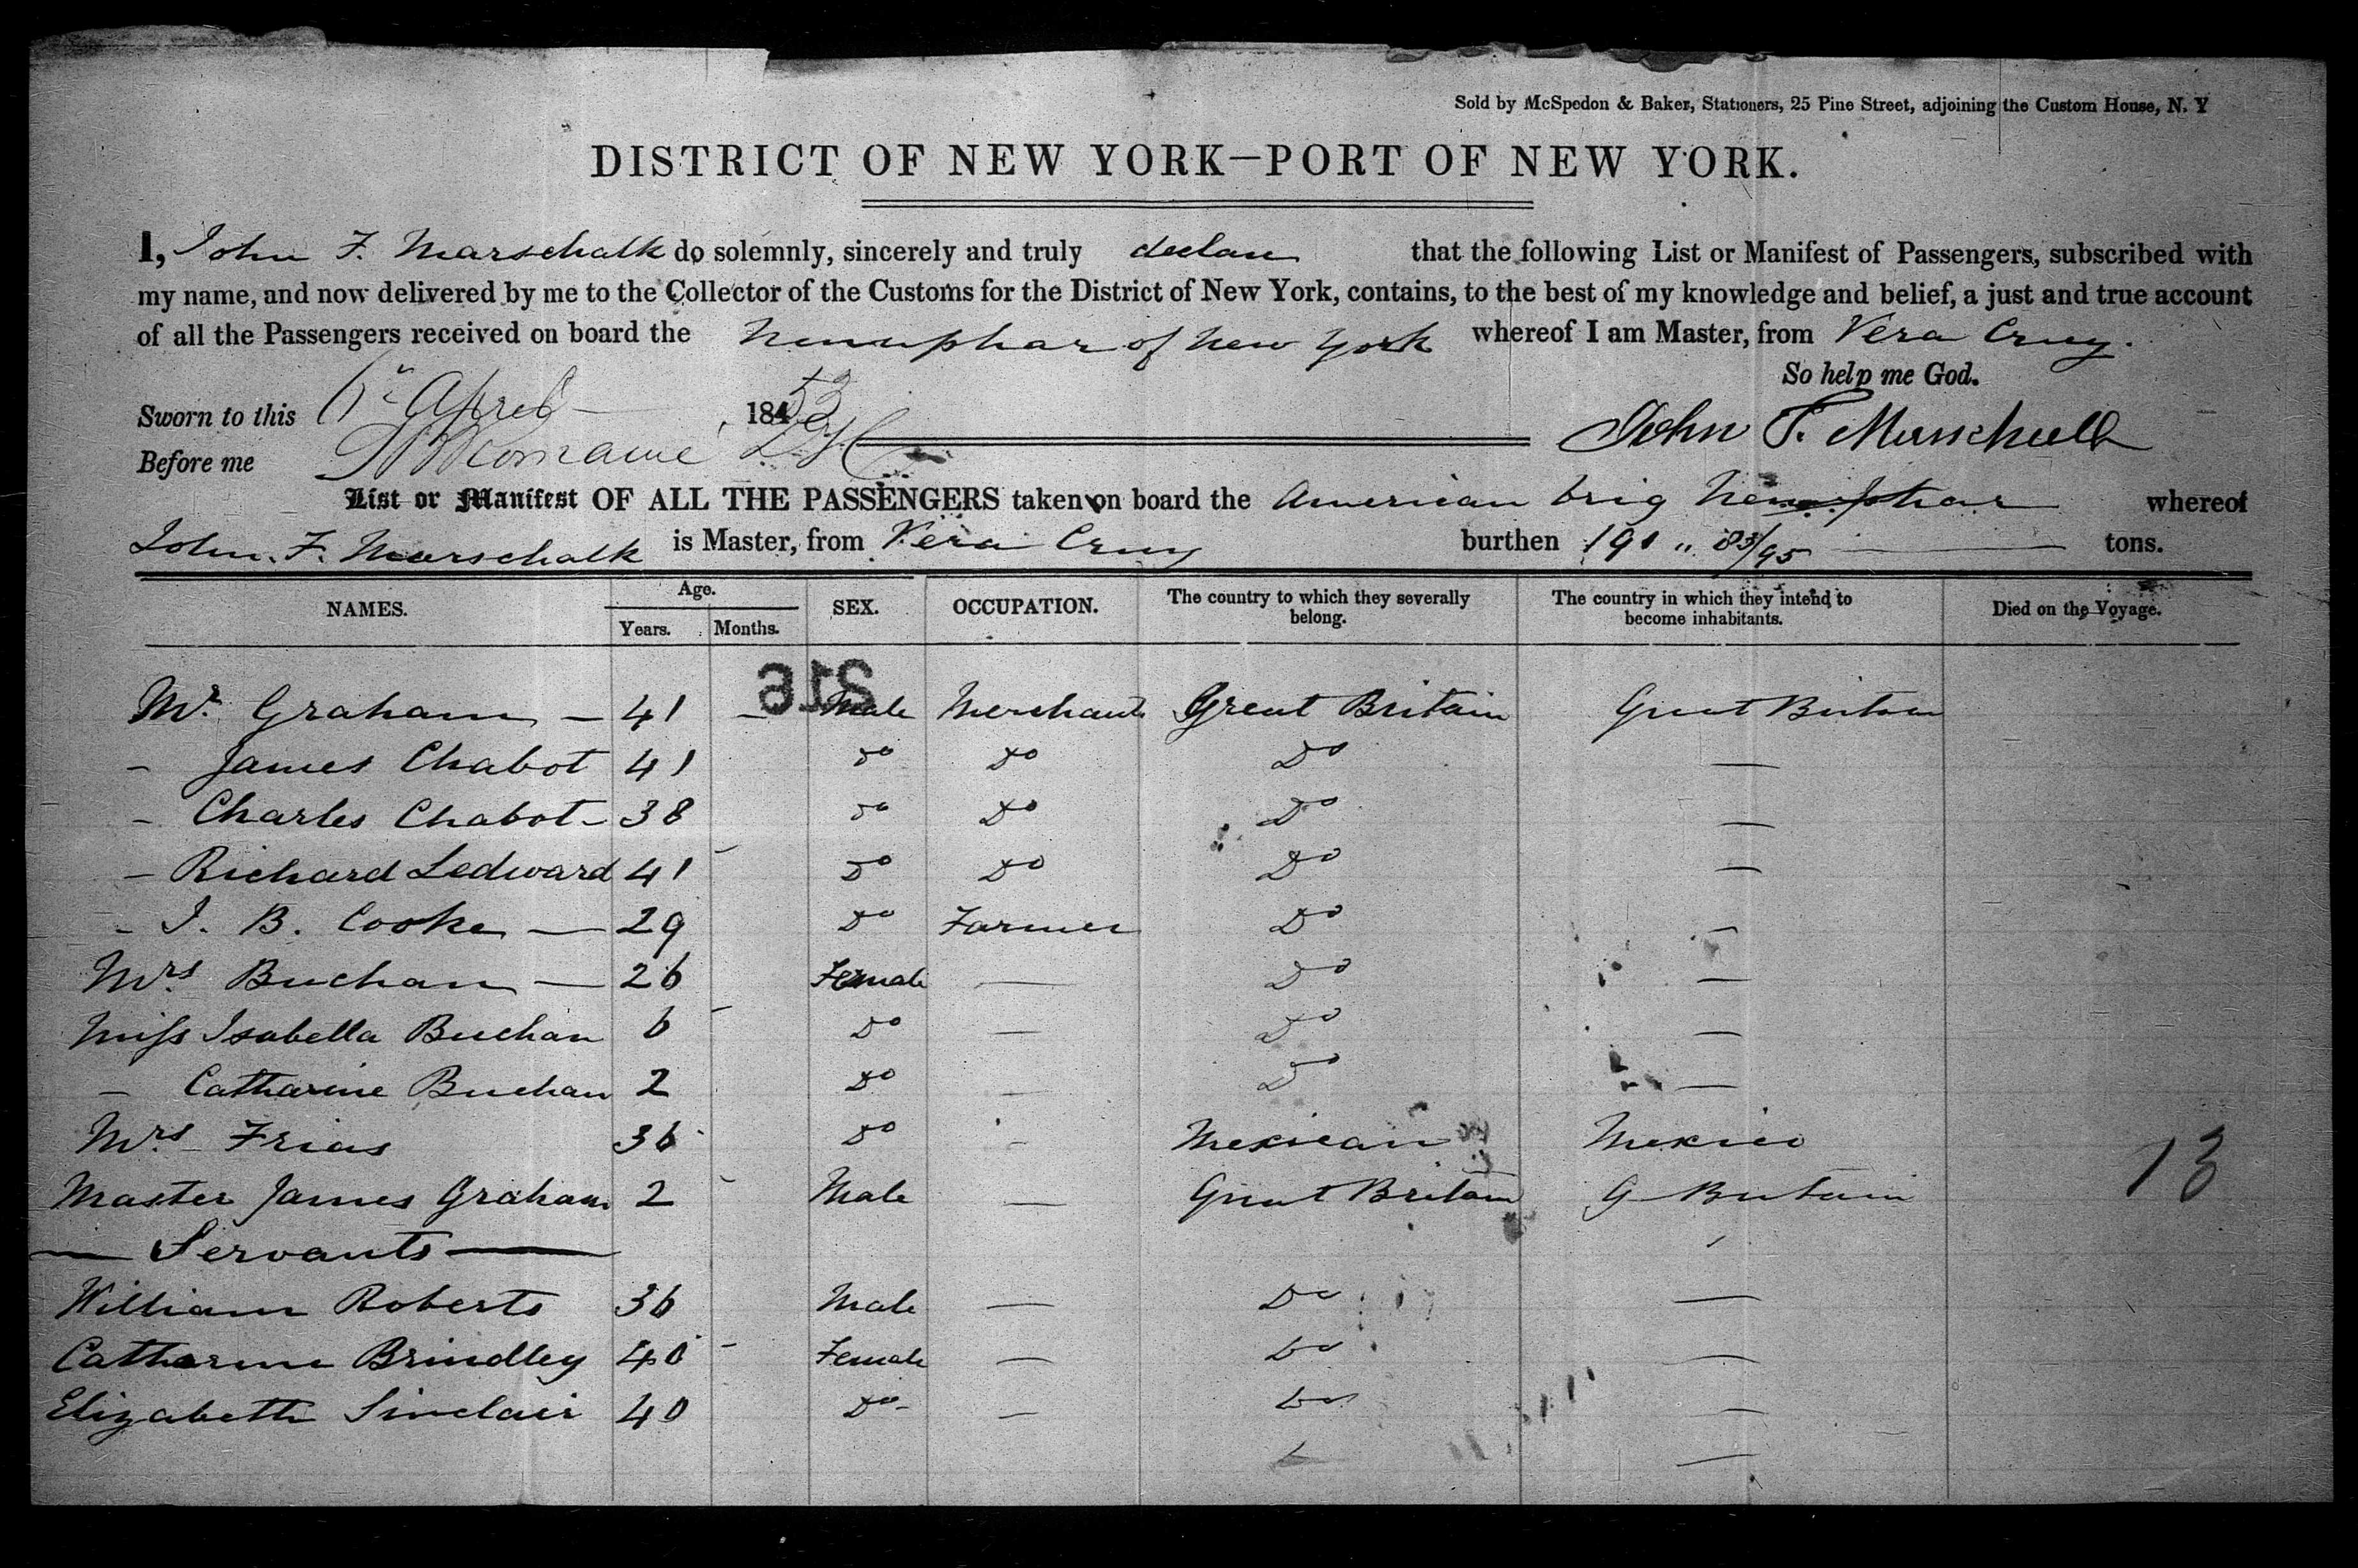 Sold by McSpedon & Baker, Stationers, 25 Pine Street, adjoining the Custom House, N. Y
DISTRICT OF NEW YORK—PORT OF NEW YORK.
I, John F. Marschalk do solemnly, sincerely and truly declare that the following List or Manifest of Passengers, subscribed with
my name, and now delivered by me to the Collector of the Customs for the District of New York, contains, to the best of my knowledge and belief, a just and true account
of all the Passengers received on board the Nenuphar of New York whereof I am Master, from Vera Cruz.
So help me God.
Sworn to this April 1853
John F. Marschalk
Before me
List or Manifest OF ALL THE PASSENGERS taken on board the American brig Nenuphar whereof
John. F. Marschalk is Master, from Vera Cruz burthen 191 " 83/95 tons.
NAMES. Age. Years. Months. SEX. OCCUPATION. The country to which they severally belong. The country in which they intend to become inhabitants. Died on the Voyage.
216
Mr. Graham — 41 — Male Merchant Great Britain Great Britain
- James Chabot 41 Do Do Do —
- Charles Chabot - 38 Do Do Do —
- Richard Ledward 41 Do Do Do —
- J. B. Cooke — 29 Do Farmer Do —
Mrs. Buchan — 26 Female — Do —
Miss Isabella Buchan 6 Do — Do —
- Catharine Buchan 2 Do — Do —
Mrs. Frias 36 Do - Mexican Mexico
Master James Graham 2 Male — Great Britain G Britain
13
— Servants —
William Roberts 36 Male — Do —
Catharine Brindley 40 Female — Do —
Elizabeth Sinclair 40 Do — Do —